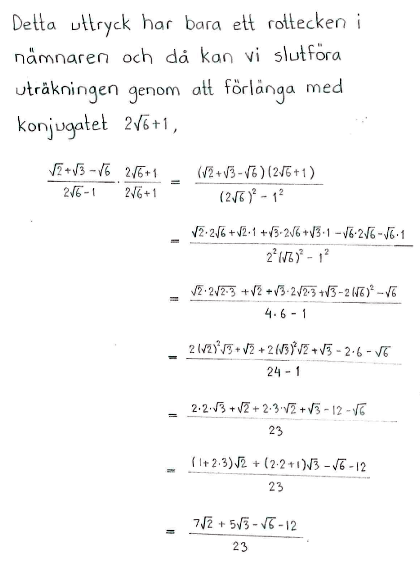 Detta uttryck har bara ett rottecken i
nämnaren och då kan vi slutföra
uträkningen genom att förlänga med
konjugatet 2√6+1,
(√2+√3-√6)/(2√6-1) · (2√6+1)/(2√6+1) = ((√2+√3-√6)(2√6+1))/((2√6)²-1²)
= (√2·2√6+√2·1+√3·2√6+√3·1-√6·2√6-√6·1)/(2²(√6)²-1²)
= (√2·2√(2·3)+√2+√3·2√(2·3)+√3-2(√6)²-√6)/(4·6-1)
= (2(√2)²√3+√2+2(√3)²√2+√3-2·6-√6)/(24-1)
= (2·2·√3+√2+2·3·√2+√3-12-√6)/23
= ((1+2·3)√2+(2·2+1)√3-√6-12)/23
= (7√2+5√3-√6-12)/23.